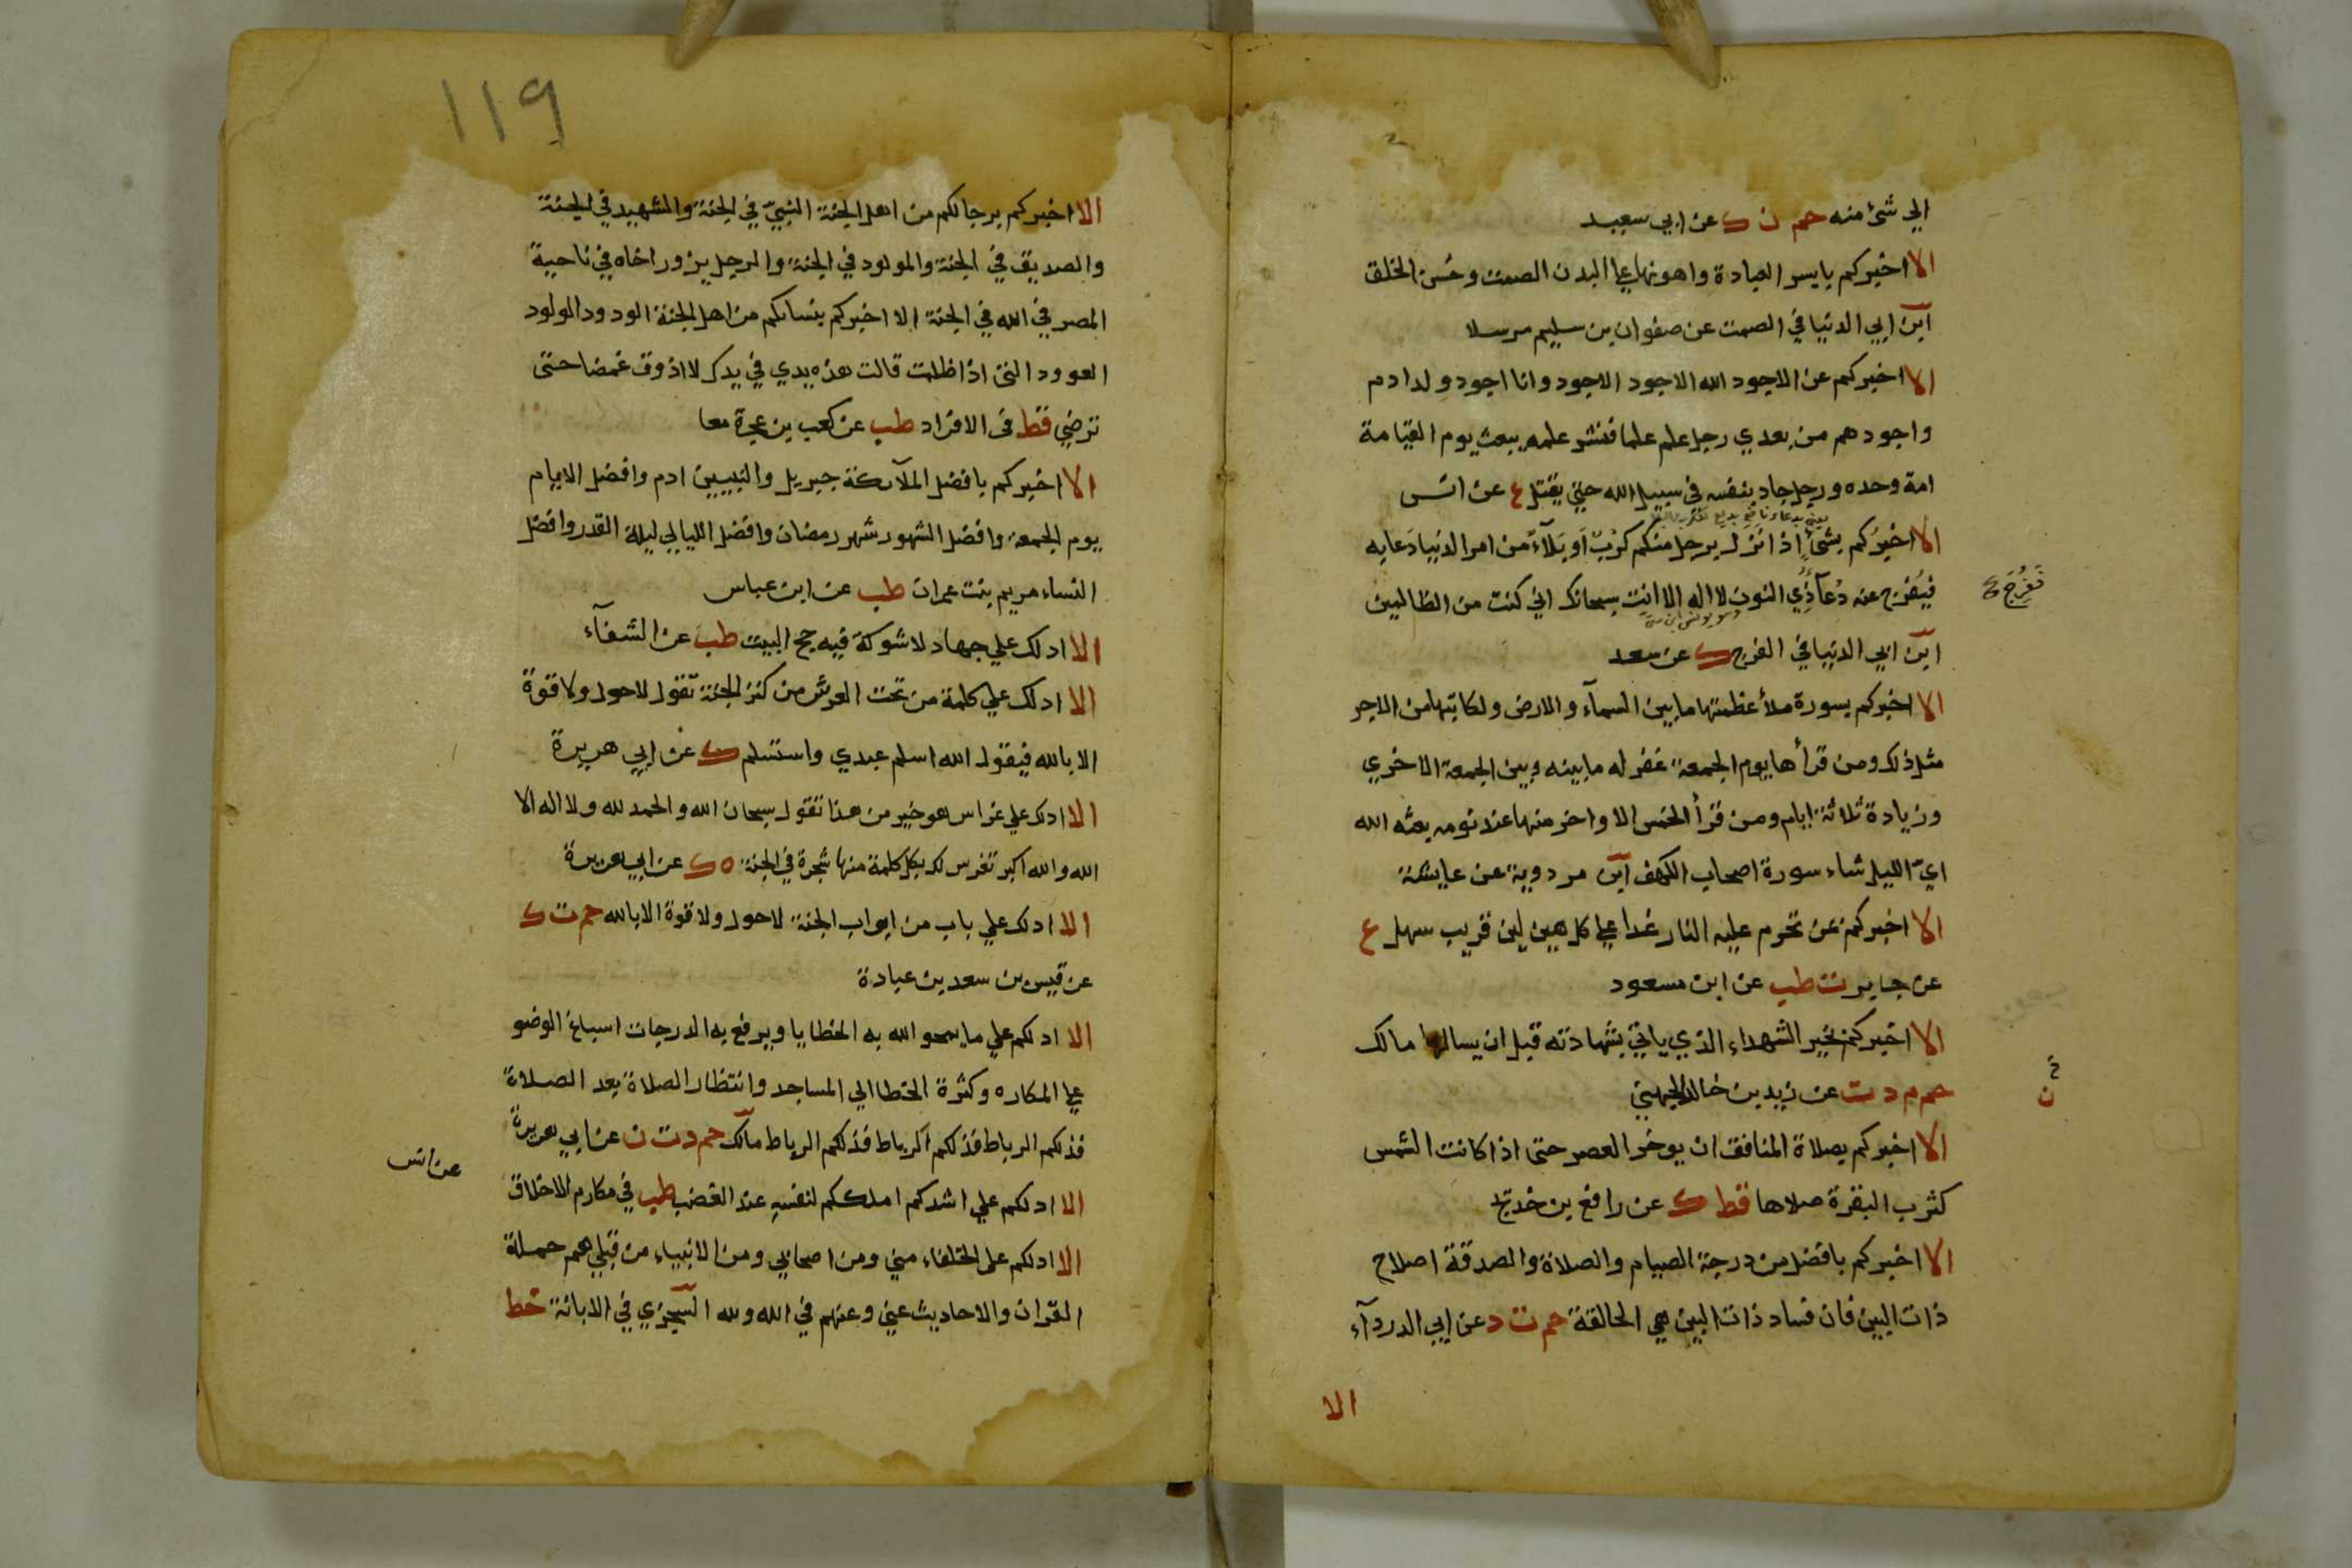 الي شئ منه حم ن ك عن ابي سعيد
الا اخبركم بايسر العبادة واهونها علي البدن الصمت وحُسن الخلق
ابن ابي الدنيا في الصمت عن صفوان بن سليم مرسلا
الا اخبركم عن الاجود الله الاجود الاجود وانا اجود ولد ادم
واجودهم من بعدي رجل علم علما فنشر علمه يبعث يوم القيامة
امة وحده ورجل جاد بنفسه في سبيل الله حتي يقتل ع عن انس
الا اخبِرُكم بشئٍ اذا نزل برجل منكم كرْبٌ اَو بَلآءٌ من امر الدنيا دَعا به
فيُفرج عنه دُعآ ذِي النون لا اله الا انت سبحانك اني كنت من الظالمين
تَفرُجَ
ابن ابي الدنيا في الفرج ك عن سعد
الا اخبركم بسورة ملأ عظمتها ما بين السمآء والارض ولكاتبها من الاجر
مثل ذلك ومن قرأها يوم الجمعة غفر له ما بينه وبين الجمعة الاخري
وزيادة ثلاثة ايام ومن قرأ الخمس الاواخر منها عند نومه بعثه الله
ايّ الليل شاء سورة اصحاب الكهف ابن مردوية عن عايشة
الا اخبركم عن تحرم عليه النار غدا علي كل هين لين قريب سهل ع
عن جابر ت طب عن ابن مسعود
الا اخبركم بخير الشهداء الذي ياتي بشهادته قبل ان يسالها مالك
حم م د ت عن زيد بن خالد الجهني
ن
الا اخبركم بصلاة المنافق ان يوخر العصر حتى اذا كانت الشمس
كثرب البقرة صلاها قط ك عن رافع بن خديج
الا اخبركم بافضل من درجة الصيام والصلاة والصدقة اصلاح
ذات البين فان فساد ذات البين هي الحالقة حم ت د عن ابي الدردآء
الا
119
الا اخبركم برجالكم من اهل الجنة النبيّ في الجنة والشهيد في الجنة
والصديق في الجنة والمولود في الجنة والرجل يزور اخاه في ناحية
المصر في الله في الجنة الا اخبركم بنسائكم من اهل الجنة الودود الولود
العوود التي اذا ظلمت قالت هذه يدي في يدك لا اذوق غمضا حتى
ترضي قط في الافراد طب عن كعب بن عجرة معا
الا اخبركم بافضل الملآئكة جبريل والنبيين ادم وافضل الايام
يوم الجمعة وافضل الشهور شهر رمضان وافضل الليالي ليلة القدر وافضل
النساء مريم بنت عمران طب عن ابن عباس
الا ادلك علي جهاد لا شوكة فيه حج البيت طب عن الشفآء
الا ادلك علي كلمة من تحت العرش من كنز الجنة تقول لا حول ولا قوة
الا بالله فيقول الله اسلم عبدي واستسلم ك عن ابي هريرة
الا ادلك علي غراس هو خير من هذا تقول سبحان الله والحمد لله ولا اله الا
الله والله اكبر تغرس لك بكل كلمة منها شجرة في الجنة ه ك عن ابي هريرة
الا ادلك علي باب من ابواب الجنة لا حول ولا قوة الا بالله حم ت ك
عن قيس بن سعد بن عبادة
الا ادلكم علي ما يمحو الله به الخطايا ويرفع به الدرجات اسباغ الوضو
علي المكاره وكثرة الخطا الي المساجد وانتظار الصلاة بعد الصلاة
فذلكم الرباط فذلكم الرباط فذلكم الرباط مالك حم د ت ن عن ابي هريرة
الا ادلكم علي اشدكم املككم لنفسه عند الغضب طب في مكارم الاخلاق
عن انس
الا ادلكم على الخلفاء مني ومن اصحابي ومن الانبياء من قبلي هم حملة
القران والاحاديث عني وعنهم في الله ولله السجزي في الابانة خط